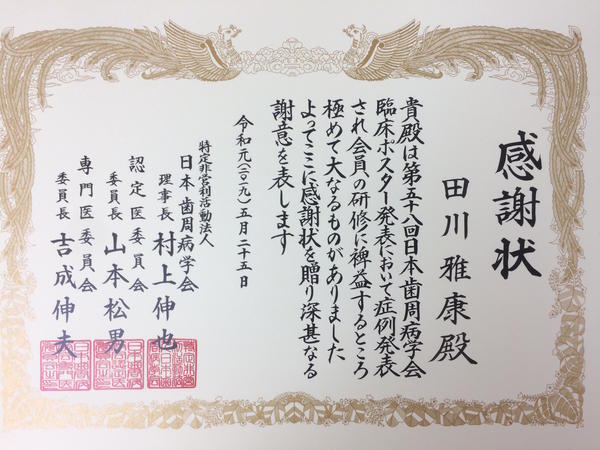 感謝状
田川雅康殿
貴殿は第五十八回日本歯周病学会
臨床ポスター発表において症例発表
され会員の研修に裨益するところ
極めて大なるものがありました
よってここに感謝状を贈り深甚なる
謝意を表します
令和元(二〇一九)五月二十五日
特定非営利活動法人
日本歯周病学会
理事長 村上伸也
認定医委員会
委員長 山本松男
専門医委員会
委員長 吉成伸夫